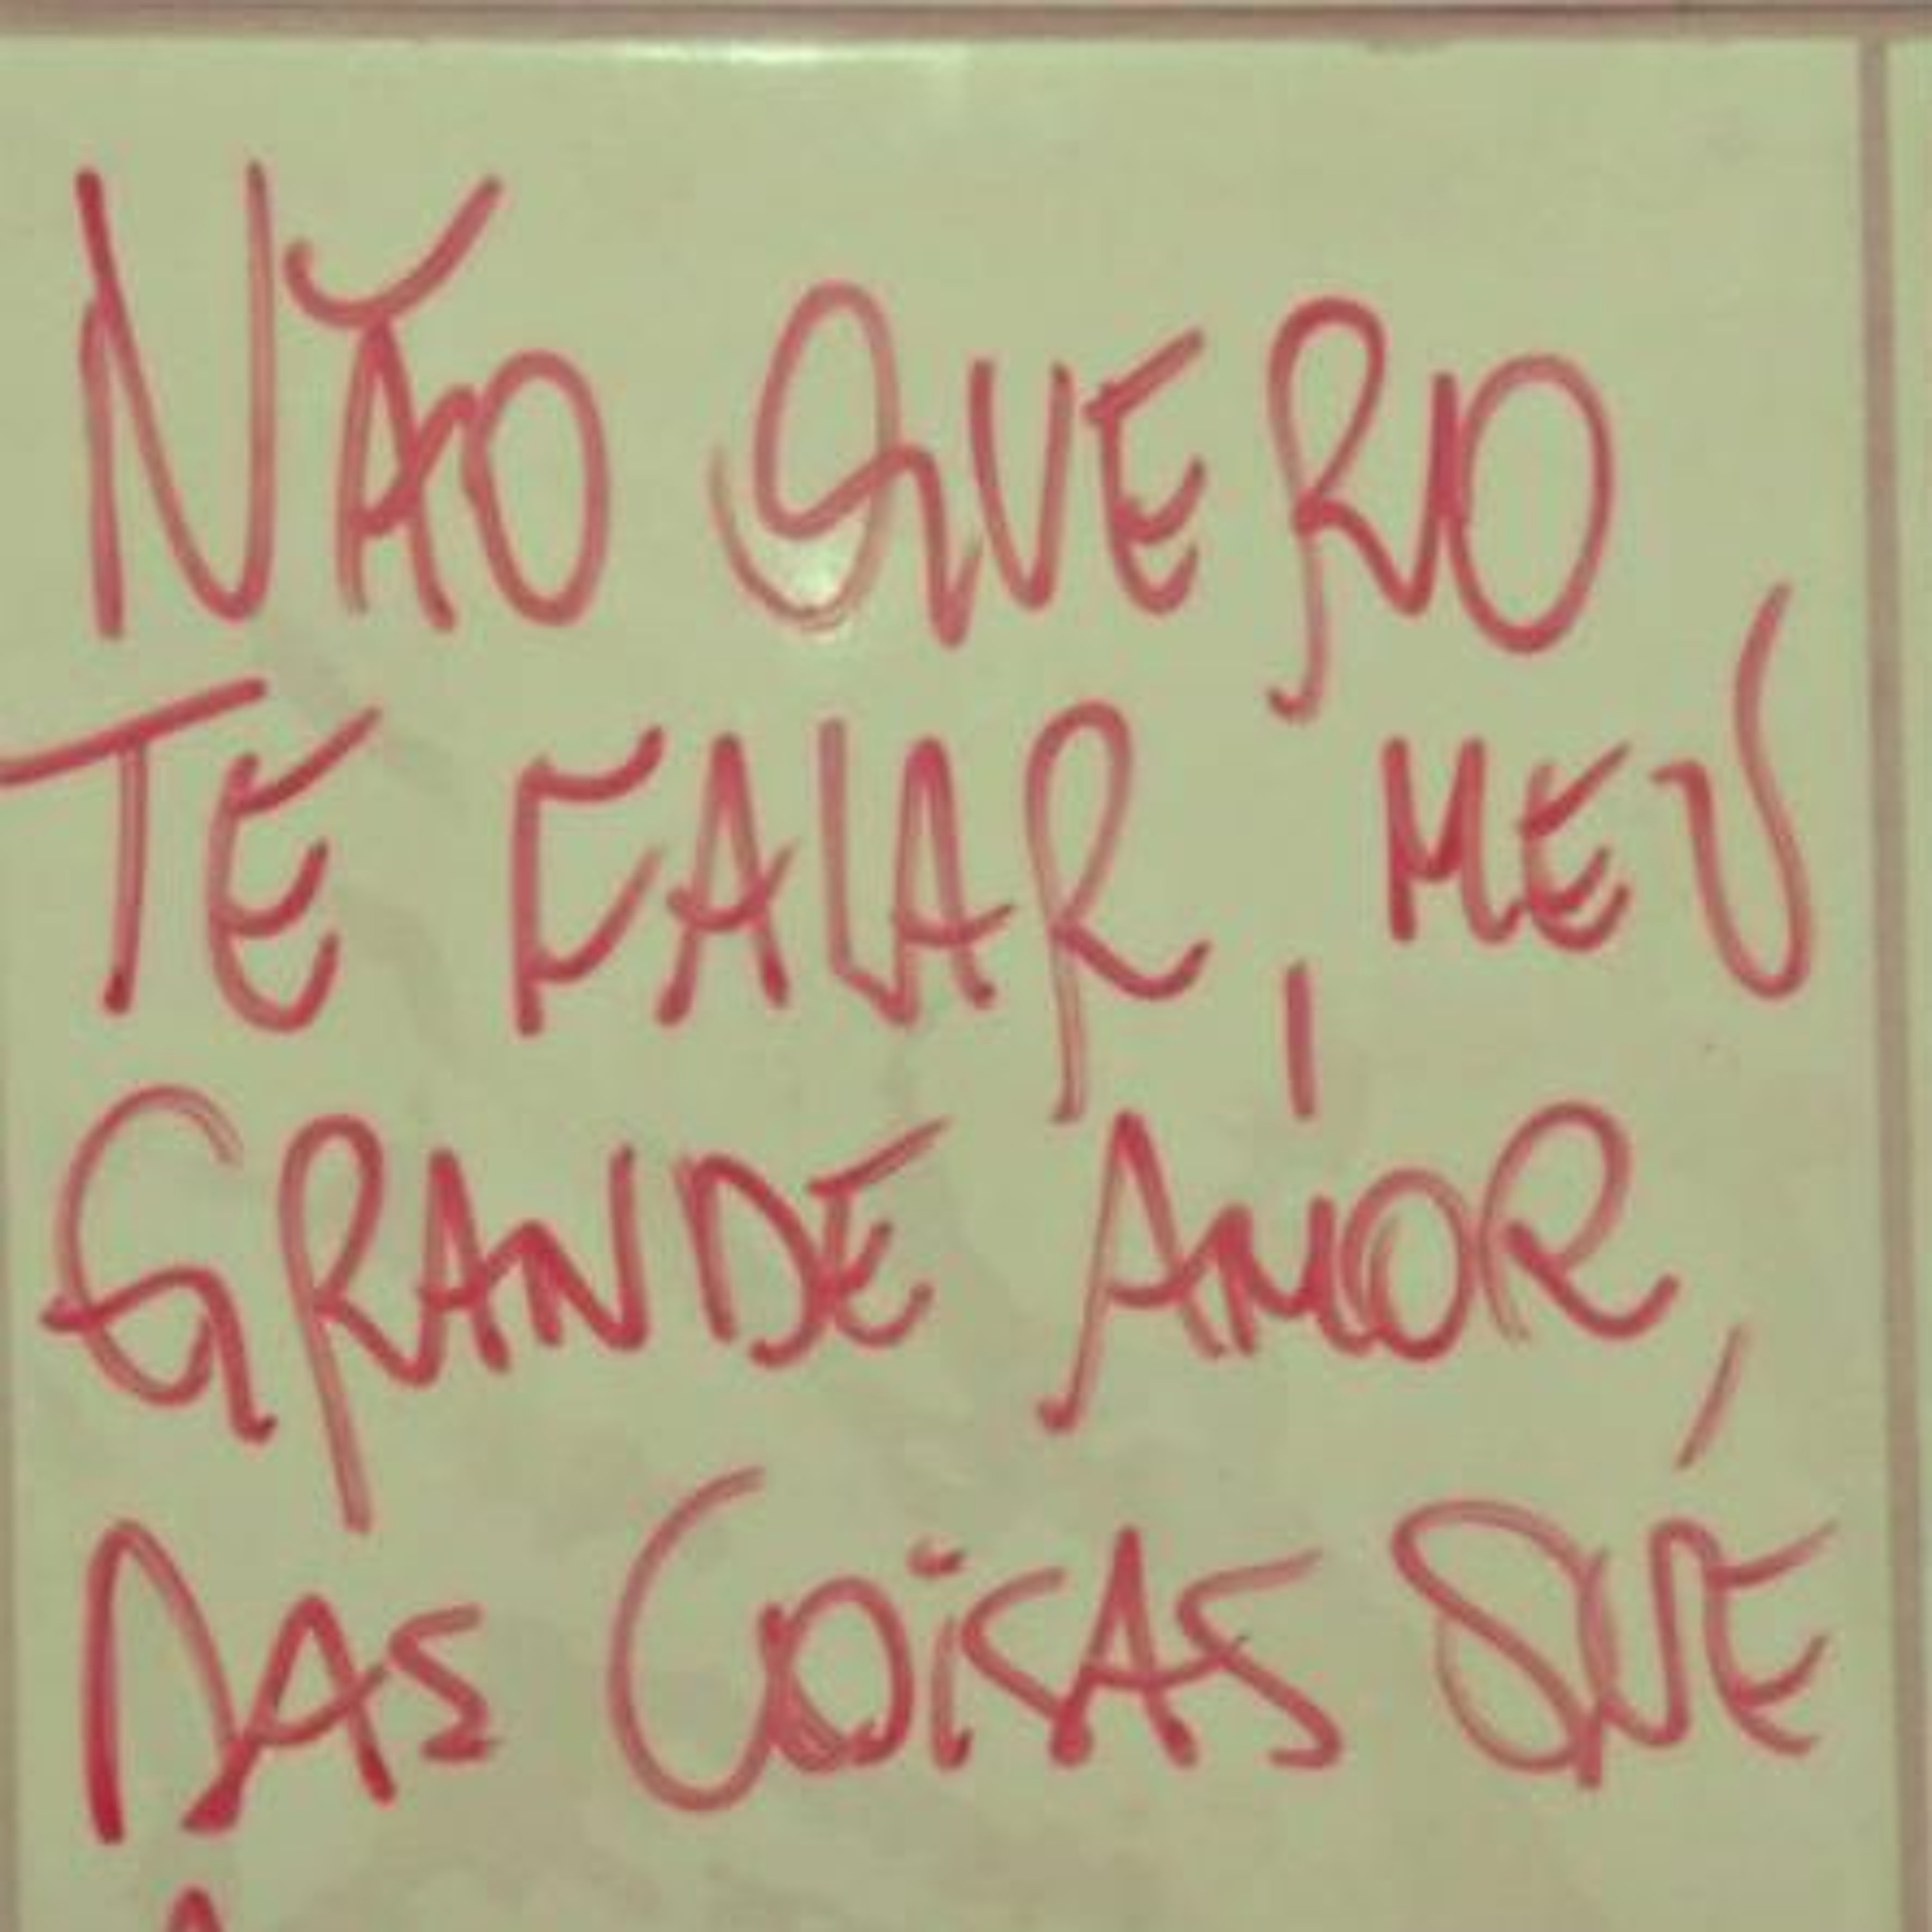 NÃO QUERO
TE FALAR, MEU
GRANDE AMOR,
DAS COISAS QUE